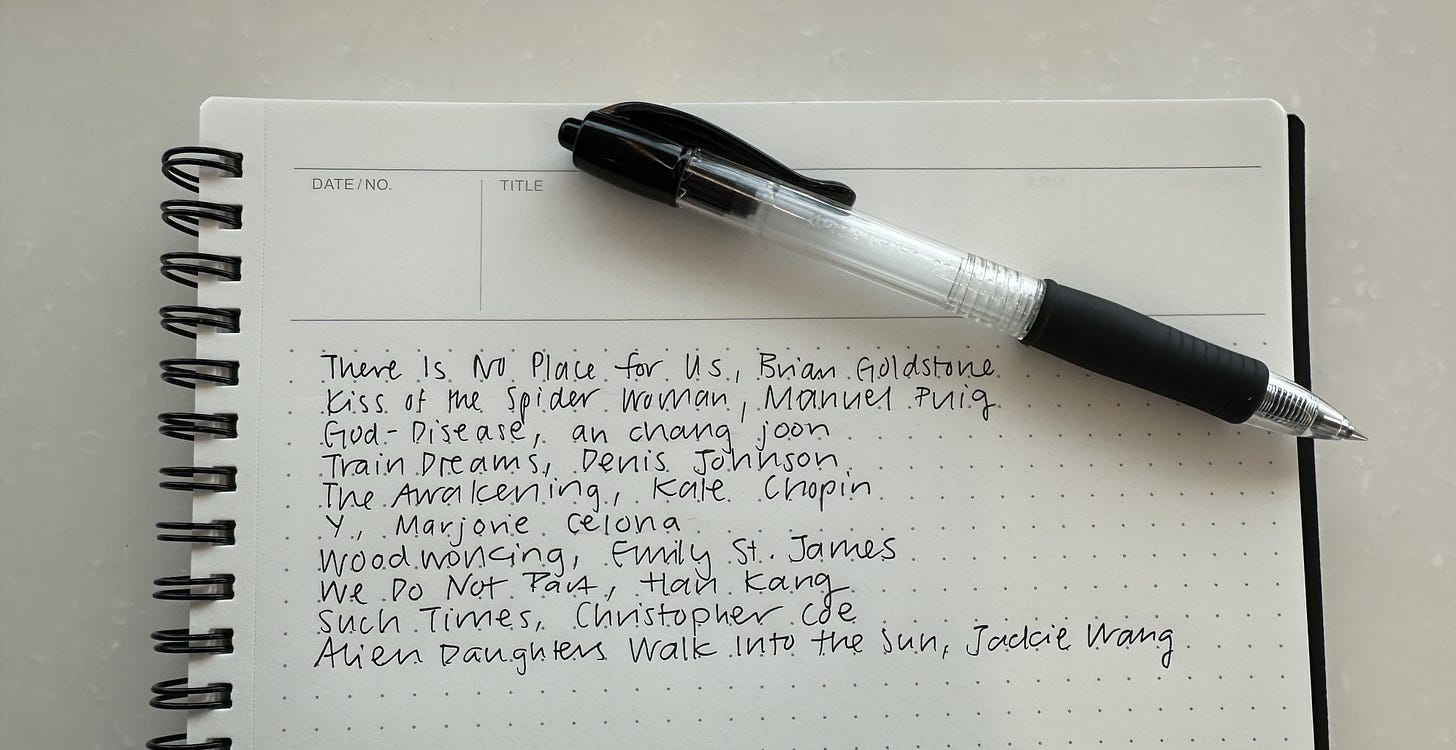 DATE/NO.
TITLE
There Is No Place for Us, Brian Goldstone
Kiss of the Spider Woman, Manuel Puig
God-Disease, an chang joon
Train Dreams, Denis Johnson
The Awakening, Kate Chopin
Y, Marjorie Celona
Woodworking, Emily St. James
We Do Not Part, Han Kang
Such Times, Christopher Coe
Alien Daughters Walk Into the Sun, Jackie Wang